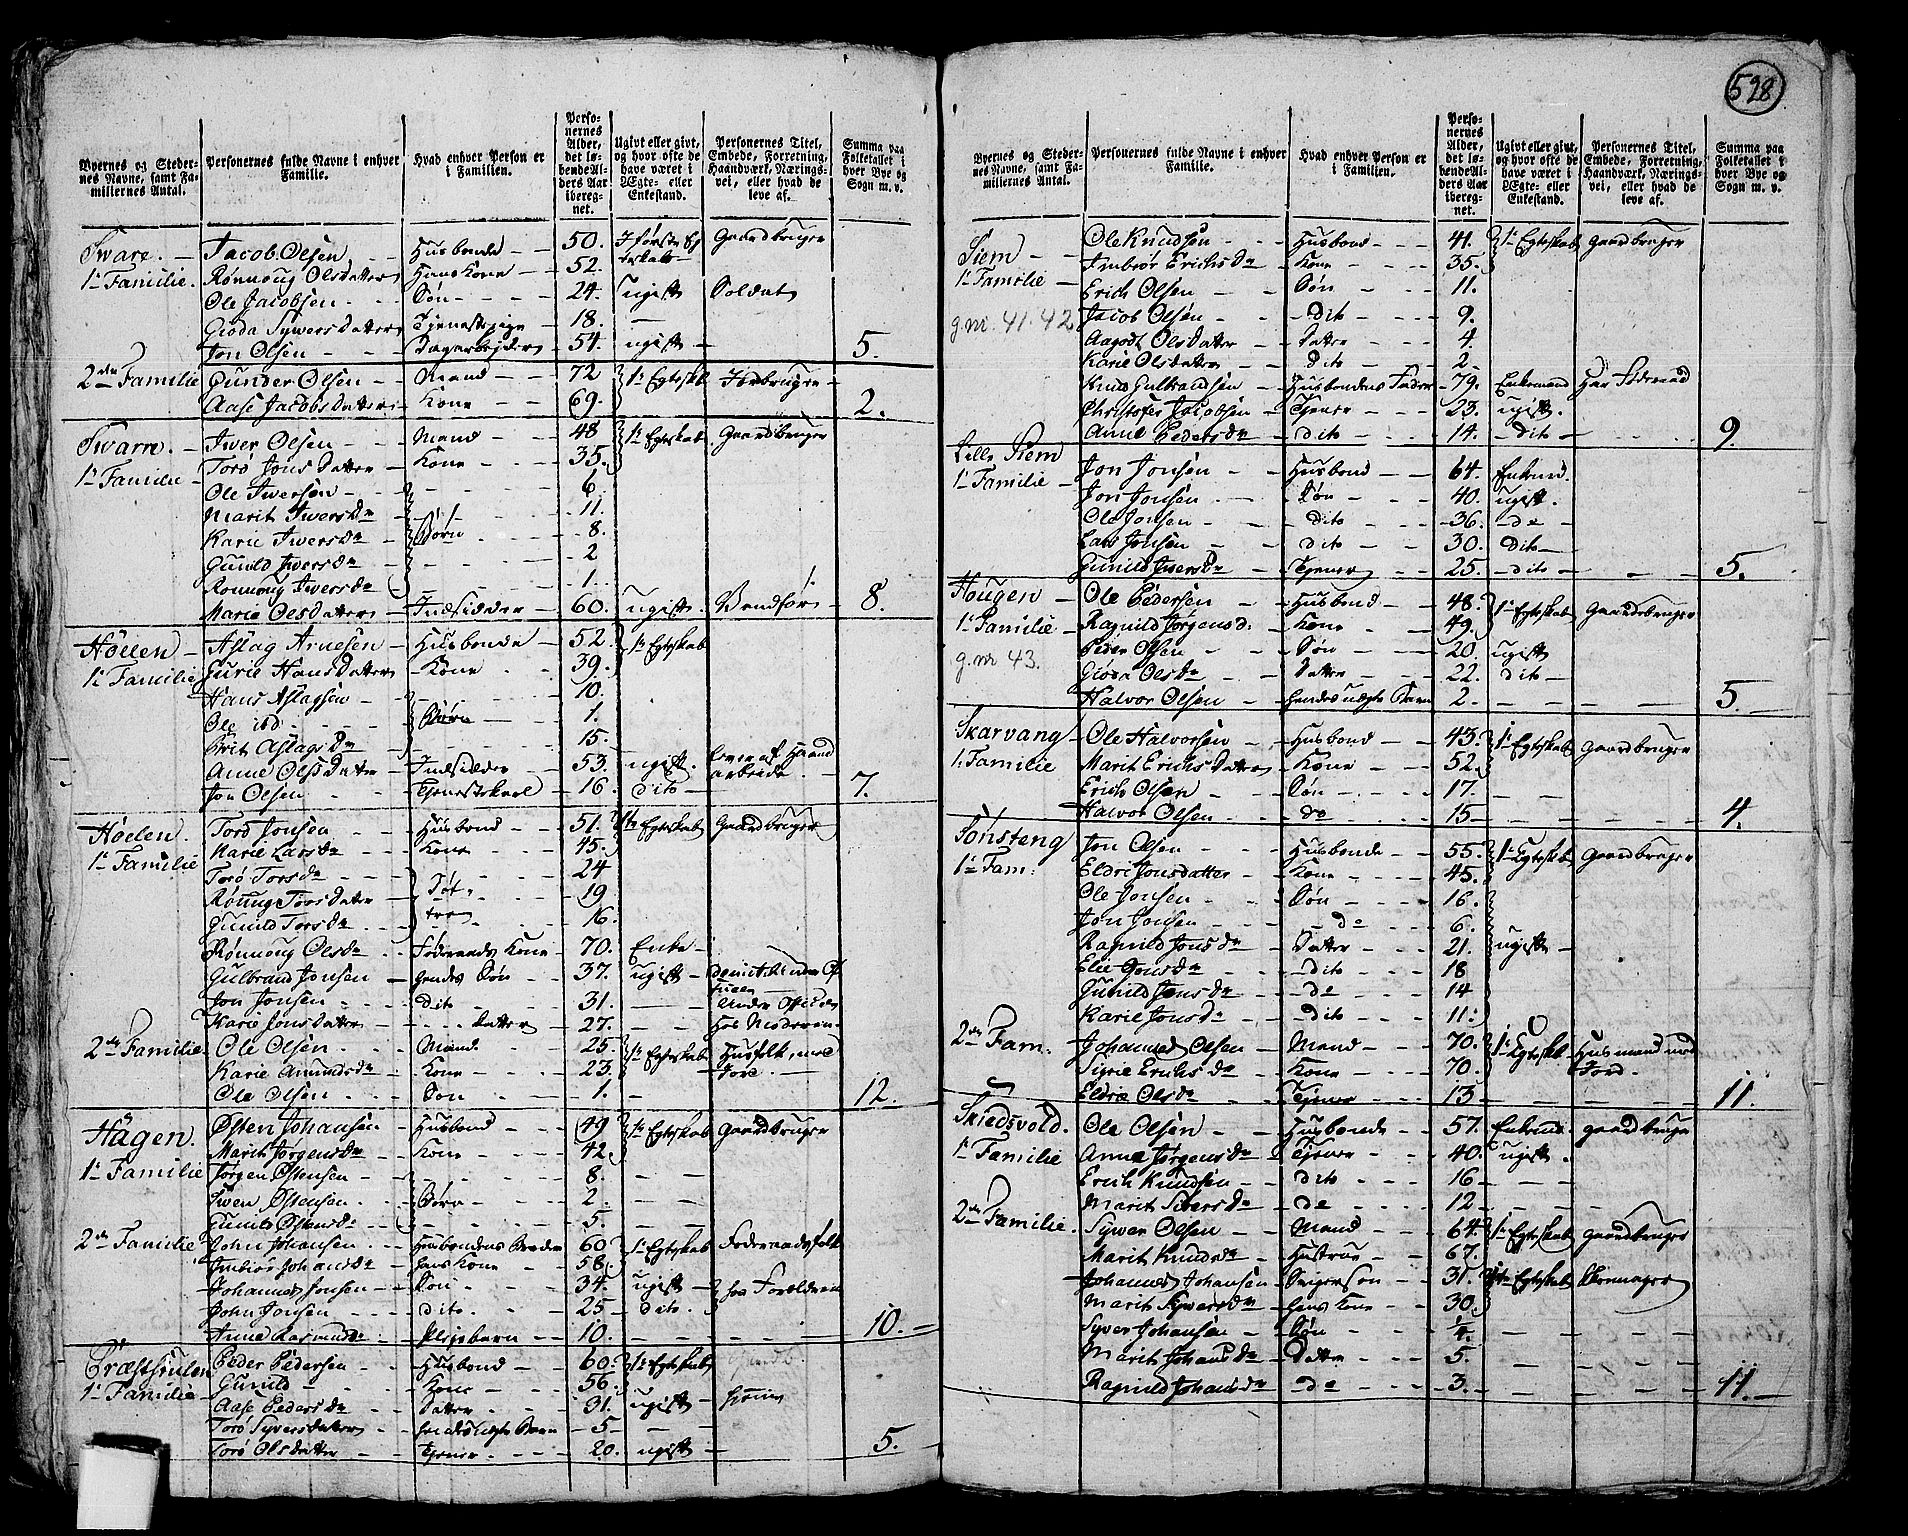 528
Byernes og Steder-
nes Navne, samt Fa-
miliernes Antal.
Personernes fulde Navne i enhver
Familie.
Hvad enhver Person er
i Familien.
Perso-
nernes
Alder,
det lø-
bende Al-
ders Aar
ibereg-
net.
Ugivt eller givt,
og hvor ofte de
have været i
Ægte- eller
Enkestand.
Personernes Titel,
Embede, Forretning,
Haandværk, Nærings-
vei, eller hvad de
leve af.
Summa paa
Folketallet i
hver Bye og
Sogn m. v.
Sware. Jacob Olsen Husbonde 50. Gaardbruger
1te Familie. Rønnoug Olsdatter Hans Kone 52.
Ole Jacobsen Søn 24. ugift Soldat
Gioda Sywersdatter Tjenestepige 18.
Jon Olsen Dagarbejder 54. ugift 5.
2den Familie Gunder Olsen Mand 72 1te Egteskb Jordbruger
Aase Jacobsdatter Kone 69. 2.
Swarre. Iwer Olsen Mand 48 1te Egteskab. Gaardbruger
1te Familie Torø Jonsdatter Kone 35.
Ole Iwersen 6.
Marit Iwersdr 11.
Karie Iwersdr Børn 8.
Gunild Iwersdr 2
Rønnoug Iwersdr 1.
Marie Olsdatter Indsidder 60. ugift. Vandfør 8.
Høelen Aslag Arnesen Husbonde 52. 1te Egteskab
1te Familie Gurie Hansdatter Kone 39.
Hans Aslagsen 10.
Ole ibd Børn 1.
Brit Aslagsdr 15.
Anne Olsdatter Indsidder 53. ugift. lever af Haand
arbeide.
Jon Olsen Tjenestekarl 16. dito 7.
Høelen. Tord Jonsen Husbond 51. 1te Egteskab Gaardbruger
1te Familie Marie Larsdr Kone 45.
Torø Torsdr 24
Rønnug Torsdatter Døt- 19
Gunild Torsdr tre 16.
Rønnoug Olsdr Føderaads Kone 70. Enke
Gulbrand Jonsen hendes Søn 37. ugift
Jon Jonsen dito 31.
Karie Jonsdatter Datter 27. Hos Moderen
2den Familie Ole Olsen Mand. 25 1te Egteskab Husfolk med
Karie Amundsdr Kone 23. Jord.
Ole Olsen Søn 1. 12.
Hagen. Østen Johansen Husbond 49 1te Egteskab Gaardbruger
1te Familie Marit Jørgensdr Kone 42.
Jørgen Østensen 8.
Iwer Østensen Børn 2
Gunild Østensdr 5.
2den Familie John Johansen Husbondens Broder 60 1te Egteskab Føderaadsfolk
Imbiør Johansdr hans Kone 58.
Johannes Jonsen Søn 34. ugift hos Forældrene
John Jonsen dito 25 dito.
Anne Rasmusdr Plejebarn 10. 10.
Præsthulen Peder Pedersen Husbond 60. 1te Egteskab
1te Familie Gunild Kone 56.
Aase Pedersdr Datter 31. ugift
Torø Syversdatter hendes uægte Barn 5
Torø Olsdatter Tjener 20. ugift 5.
Byernes og Steder-
nes Navne, samt Fa-
miliernes Antal.
Personernes fulde Navne i enhver
Familie.
Hvad enhver Person er
i Familien.
Perso-
nernes
Alder,
det lø-
bende Al-
ders Aar
ibereg-
net.
Ugivt eller givt,
og hvor ofte de
have været i
Ægte- eller
Enkestand.
Personernes Titel,
Embede, Forretning,
Haandværk, Nærings-
vei, eller hvad de
leve af.
Summa paa
Folketallet i
hver Bye og
Sogn m. v.
Siem Ole Knudsen Husbond 41. 1te Egteskab Gaardbruger
1te Familie Imbiør Erichsdr Kone 35.
Erich Olsen Søn 11.
g.nr. 41.42 Jacob Olsen dito 9.
Aagodt Olsdatter Datter 4.
Karie Olsdatter dito 2
Knud Gulbrandsen Husbondens Fader 79. Enkemand Har Føderaad
Christofer Jacobsen Tjener 23. ugift.
Anne Pedersdr dito 14. dito 9.
Lille Siem Jon Jonsen Husbond 64. Enkemd.
1te Familie Jon Jonsen Søn 40. ugift.
Ole Jonsen dito 36. do
Lars Jonsen dito 30. dito
Gunild Iwersdr Tjener 25. dito 5.
Hougen Ole Pedersen Husbond 48. 1te Egteskab Gaardbruger
1te Familie Ragnild Jørgensd. Kone 49.
Peder Olsen Søn 20. ugift
g.nr 43. Gioda Olsdr Datter 22. dito
Halvor Olsen hendes uægte Barn 2. 5.
Skarvang Ole Halvorsen Husbond 43. 1te Egteskab Gaardbruger
1. Familie Marit Erichsdatter Kone 52.
Erich Olsen Søn 17.
Halvor Olsen do 15 4.
Sønsteng Jon Olsen Husbonde 55. 1te Egteskab Gaardbruger
1te Fam: Eldri Jonsdatter Kone 45.
Ole Jonsen Søn 16.
Jon Jonsen do 6.
Ragnild Jonsdr Datter 21. ugift
Elie Jonsdr dito 18
Gunild Jonsdr do 14
Karie Jonsdr dito 11.
2den Fam: Johannes Olsen Mand 70. 1te Egteskab Husmand med
Sigrie Erichsdr Kone 70. Jord.
Eldrie Olsdr Tejener 13 11.
Skiedsvold. Ole Olsen Husbonde 57. Enkemd. gaardbruger
1te Familie Anne Jørgensdr Tjener 40. ugift.
Erich Knudsen dito 16
Marit Siversdr do 12
2den Familie. Sywer Olsen Mand 64. 1te Egteskab Gaardbruger
Marit Knudsdr Hustrue 67.
Johannes Johansen Svigersøn 31. 1te Egteskab
Marit Sywersdr hans Kone 30.
Syver Johansen Søn 1/4.
Marit Johansdr datter 5.
Ragnild Johansdr do 3. 11.